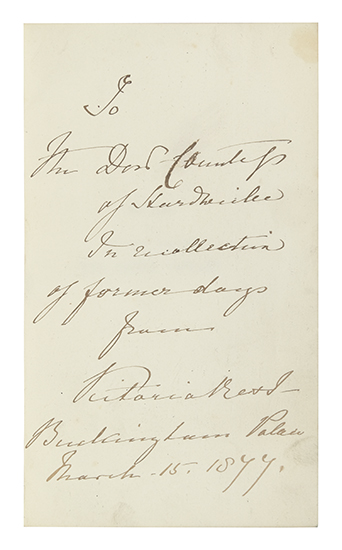 To
The Dowr Countess
of Hardwicke
In recollection
of former days
from
Victoria R & I
Buckingham Palace
March 15. 1877.